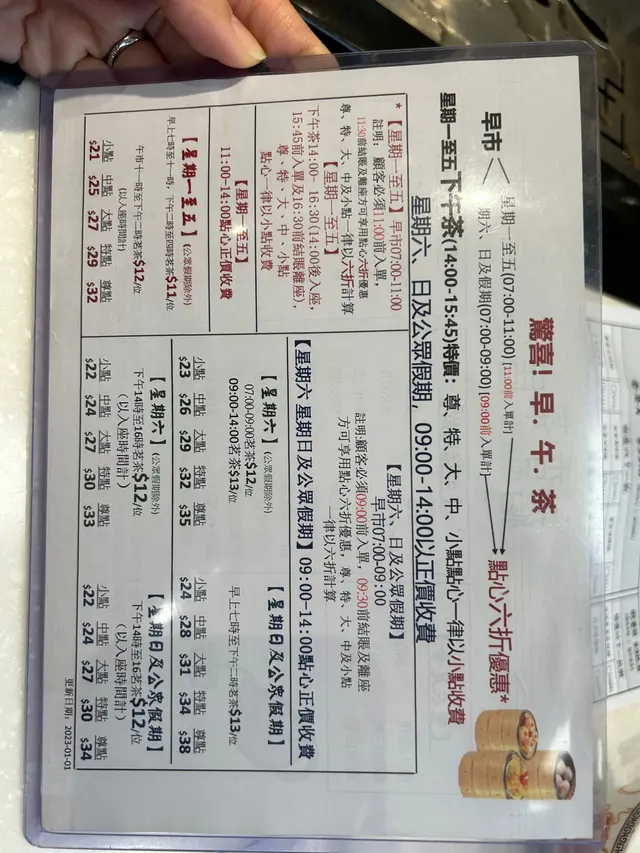 驚喜！早．午．茶
早市
星期一至五(07:00-11:00) [11:00前入單計]
期六、日及假期(07:00-09:00) [09:00前入單計]
點心六折優惠*
星期一至五下午茶(14:00-15:45)特價：尊、特、大、中、小點點心一律以小點收費
星期六、日及公眾假期，09:00-14:00以正價收費
*【星期一至五】早市07:00-11:00
註明：顧客必須11:00前入單，
11:30前結賬及離座方可享用點心六折優惠
尊、特、大、中及小點一律以六折計算
【星期一至五】
下午茶14:00-16:30(14:00後入座，
15:45前入單及16:30前結賬離座)，
尊、特、大、中、小點
點心一律以小點收費
【星期一至五】
11:00-14:00點心正價收費
【星期一至五】(公眾假期除外)
早上七時至十一時，下午二時至四時茗茶$11/位
午市十一時至下午二時茗茶$12/位
(以入座時間計)
小點 中點 大點 特點 尊點
$21 $25 $27 $29 $32
【星期六、日及公眾假期】
早市07:00-09:00
註明:顧客必須09:00前入單，09:30前結賬及離座
方可享用點心六折優惠，尊、特、大、中及小點
一律以六折計算
【星期六 星期日及公眾假期】09:00-14:00點心正價收費
【星期六】(公眾假期除外)
07:00-09:00茗茶$12/位
09:00-14:00茗茶$13/位
小點 中點 大點 特點 尊點
$23 $26 $29 $32 $35
【星期日及公眾假期】
早上七時至下午二時茗茶$13/位
小點 中點 大點 特點 尊點
$24 $28 $31 $34 $38
【星期六】(公眾假期除外)
下午14時至16時茗茶$12/位
(以入座時間計)
小點 中點 大點 特點 尊點
$22 $24 $27 $30 $33
【星期日及公眾假期】
下午14時至16茗茶$12/位
(以入座時間計)
小點 中點 大點 特點 尊點
$22 $24 $27 $30 $34
更新日期：2023-01-01